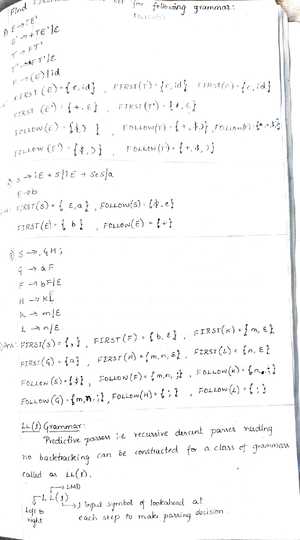 Find FIRST set for following grammar:
FOLLOW
1) E→TE'
E'→+TE'/ε
T→FT'
T'→*FT'/ε
F→(E)/id
FIRST (E) = {(, id}, FIRST(T) = {(, id} FIRST(F) = {(, id}
FIRST (E') = {+, ε}, FIRST(T') = {*, ε}
FOLLOW(E) = {$, ) }, FOLLOW(T) = {+, $, )}, FOLLOW(F) = {*, +, $, )}
FOLLOW (E') = {$, )}, FOLLOW(T') = {+, $, )}
2) S→iE+S/iE+SeS/a
E→b
FIRST(S) = {i, a}, FOLLOW(S) = {$, e}
FIRST(E) = { b }, FOLLOW(E) = {+}
3) S→, GH;
G→aF
F→bF/ε
H→KL
K→m/ε
L→n/ε
Ans: FIRST(S) = {,}, FIRST(F) = {b, ε}, FIRST(K) = {m, ε}
FIRST(G) = {a}, FIRST(H) = {m, n, ε}, FIRST(L) = {n, ε}
FOLLOW(S) = {$}, FOLLOW(F) = {m, n, ;}, FOLLOW(K) = {n, ;}
FOLLOW(G) = {m, n, ;}, FOLLOW(H) = {;}, FOLLOW(L) = {;}
LL(1) Grammar:
Predictive parsers i.e recursive descent parser needing
no backtracking can be constructed for a class of grammars
called as LL(1).
→LMD
LL(1)
Left to right
→1 input symbol of lookahead at
each step to make parsing decision.